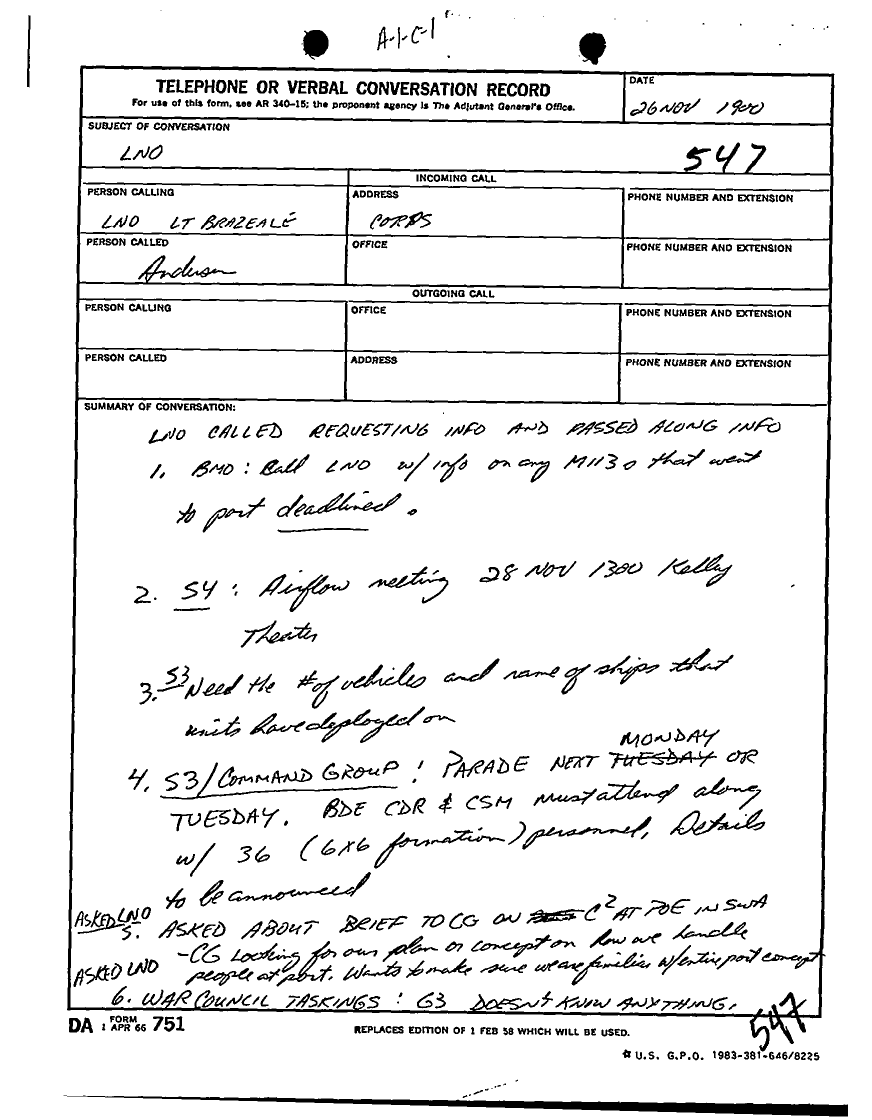 A-1-C-1
TELEPHONE OR VERBAL CONVERSATION RECORD
For use of this form, see AR 340-15; the proponent agency is The Adjutant General's Office.
DATE
26 NOV 1900
SUBJECT OF CONVERSATION
LNO
547
INCOMING CALL
PERSON CALLING
ADDRESS
PHONE NUMBER AND EXTENSION
LNO LT BRAZEALE
CORPS
PERSON CALLED
OFFICE
PHONE NUMBER AND EXTENSION
Anderson
OUTGOING CALL
PERSON CALLING
OFFICE
PHONE NUMBER AND EXTENSION
PERSON CALLED
ADDRESS
PHONE NUMBER AND EXTENSION
SUMMARY OF CONVERSATION:
LNO CALLED REQUESTING INFO AND PASSED ALONG INFO
1. BMO: Call LNO w/ info on any M113s that went
to port deadlined.
2. S4: Airflow meeting 28 NOV 1300 Kelley
Theater
3. S3 Need the # of vehicles and name of ships that
units have deployed on
MONDAY
4. S3/COMMAND GROUP: PARADE NEXT TUESDAY OR
TUESDAY. BDE CDR & CSM must attend along
w/ 36 (6x6 formation) personnel. Details
to be announced
ASKED LNO
5. ASKED ABOUT BRIEF TO CG ON C² AT POE IN SWA
-CG Looking for our plan or concept on how we handle
ASKED LNO people at port. Wants to make sure we are familiar w/entire port concept
6. WAR COUNCIL TASKINGS: G3 DOESN'T KNOW ANYTHING.
547
DA FORM 751
1 APR 66
REPLACES EDITION OF 1 FEB 58 WHICH WILL BE USED.
☆ U.S. G.P.O. 1983-381-646/8225